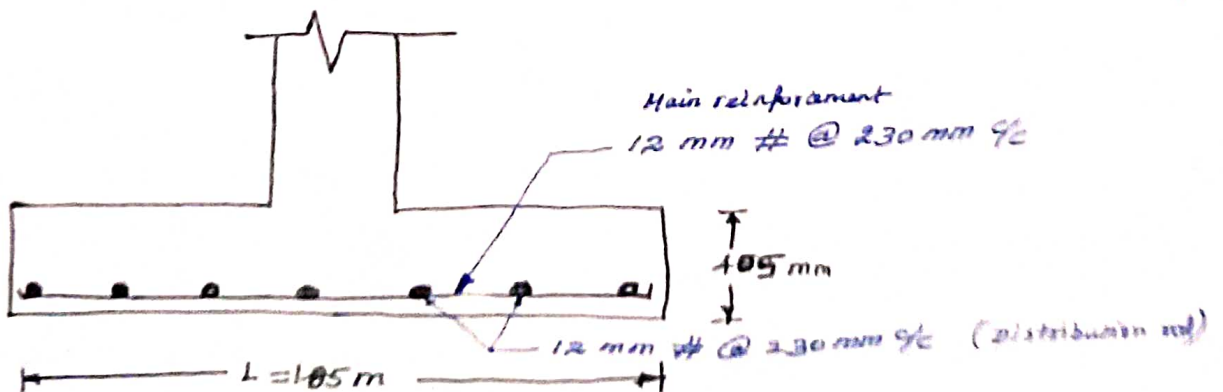 Main reinforcement
12 mm # @ 230 mm c/c
405 mm
12 mm # @ 230 mm c/c (Distribution
L = 1.85 m